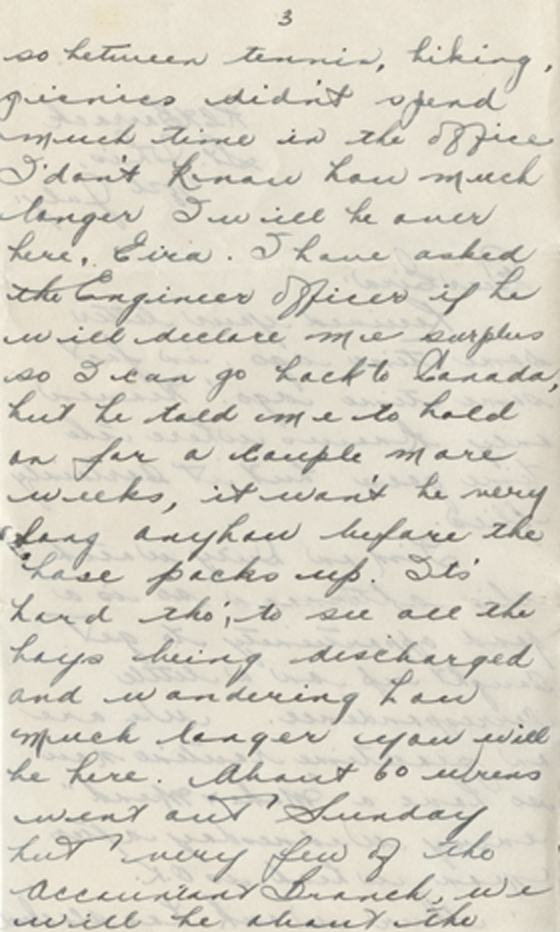 3
so between tennis, hiking,
picnics didn't spend
much time in the office
I don't know how much
longer I will be over
here, Eira. I have asked
the Engineer Officer if he
will declare me surplus
so I can go back to Canada,
but he told me to hold
on for a couple more
weeks, it won't be very
long anyhow before the
base packs up. Its'
hard tho', to see all the
boys being discharged
and wondering how
much longer you will
be here. About 60 wrens
went out Sunday
but very few of the
Accountant Branch, we
will be about the